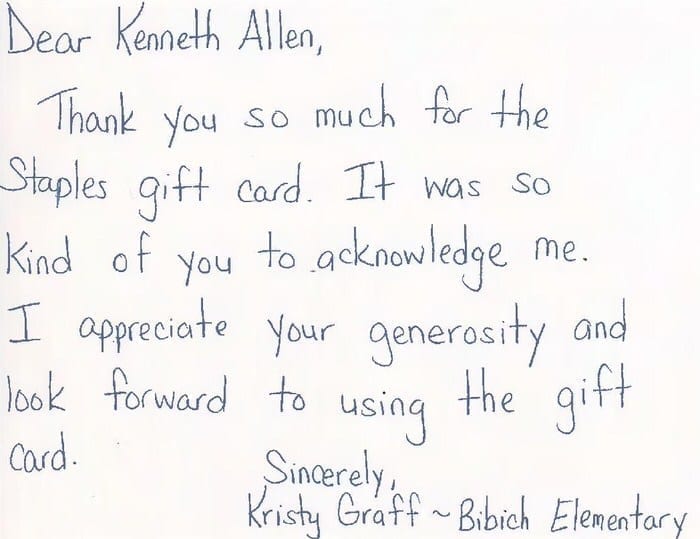 Dear Kenneth Allen,
Thank you so much for the
Staples gift card. It was so
kind of you to acknowledge me.
I appreciate your generosity and
look forward to using the gift
card.
Sincerely,
Kristy Graff ~ Bibich Elementary